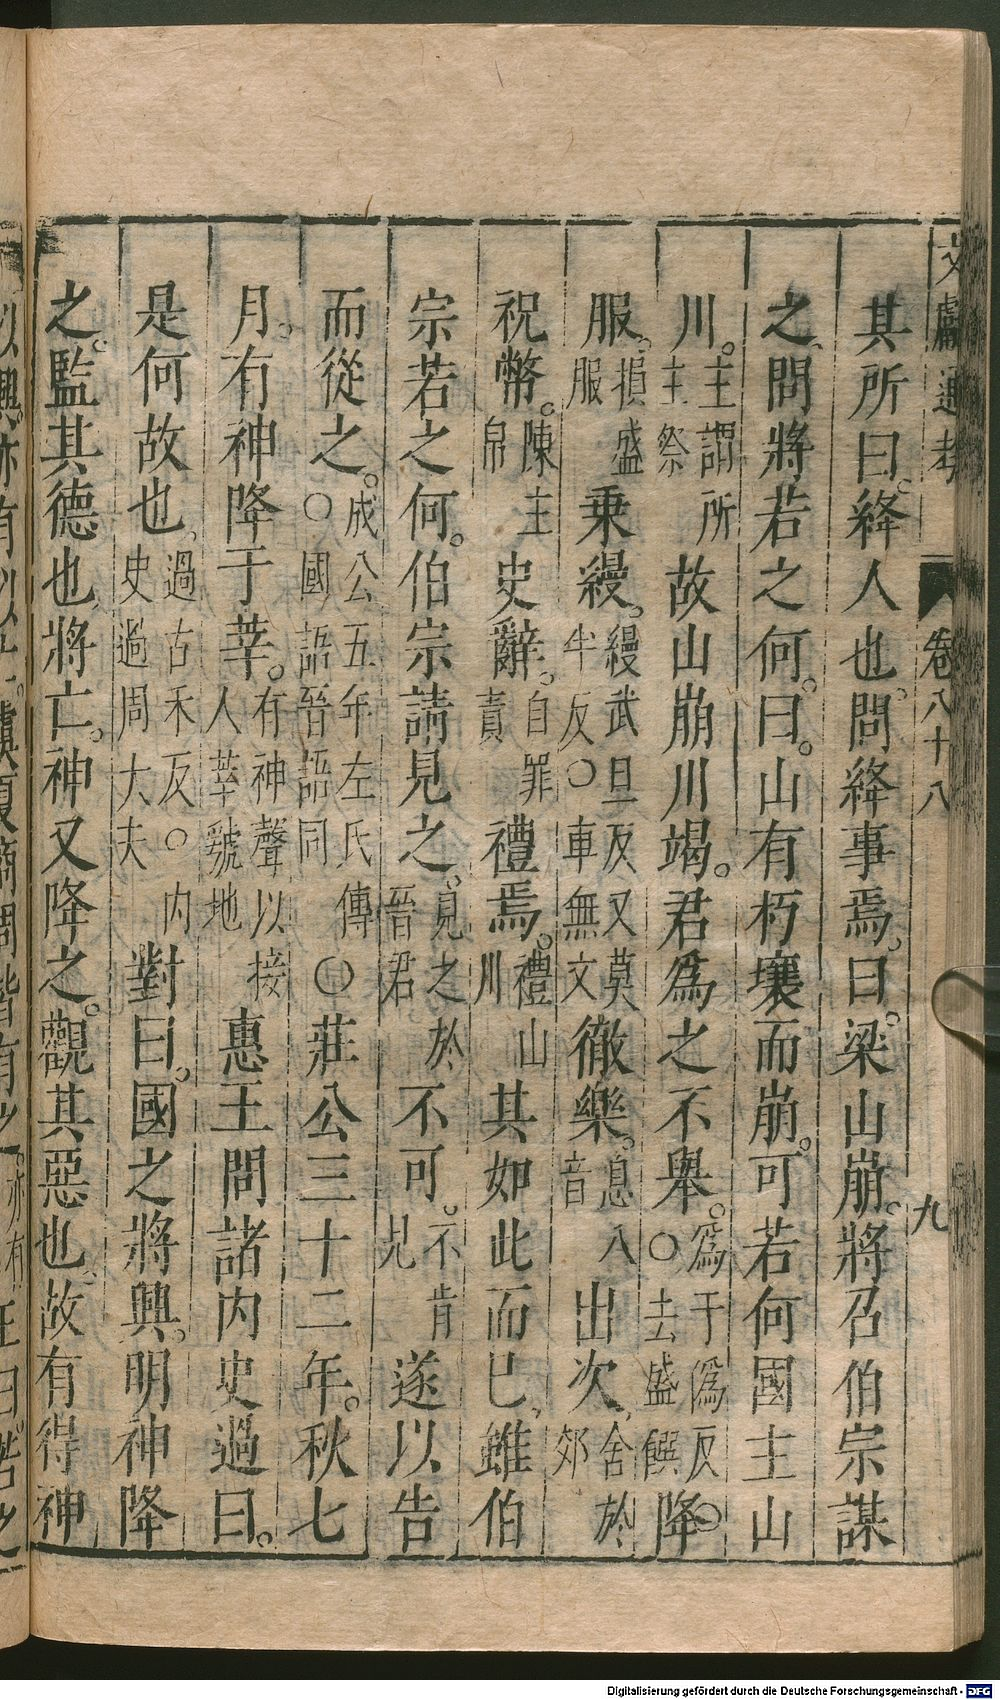 文獻通考 卷八十八 九
其所曰絳人也問絳事焉曰梁山崩將召伯宗謀
之問將若之何曰山有朽壤而崩可若何國主山
川主謂所主祭故山崩川竭君爲之不舉爲于僞反○去盛饌降
服損盛服乘縵縵武旦反又莫半反○車無文徹樂息八音出次舍於郊
祝幣陳主帛史辭自罪責禮焉禮山川其如此而已雖伯
宗若之何伯宗請見之見之於晉君不可不肯見遂以告
而從之成公五年左氏傳○國語晉語同○莊公三十二年秋七
月有神降于莘有神聲以接人莘虢地惠王問諸內史過曰
是何故也過古禾反○內史過周大夫對曰國之將興明神降
之監其德也將亡神又降之觀其惡也故有得神
Digitalisierung gefördert durch die Deutsche Forschungsgemeinschaft - DFG